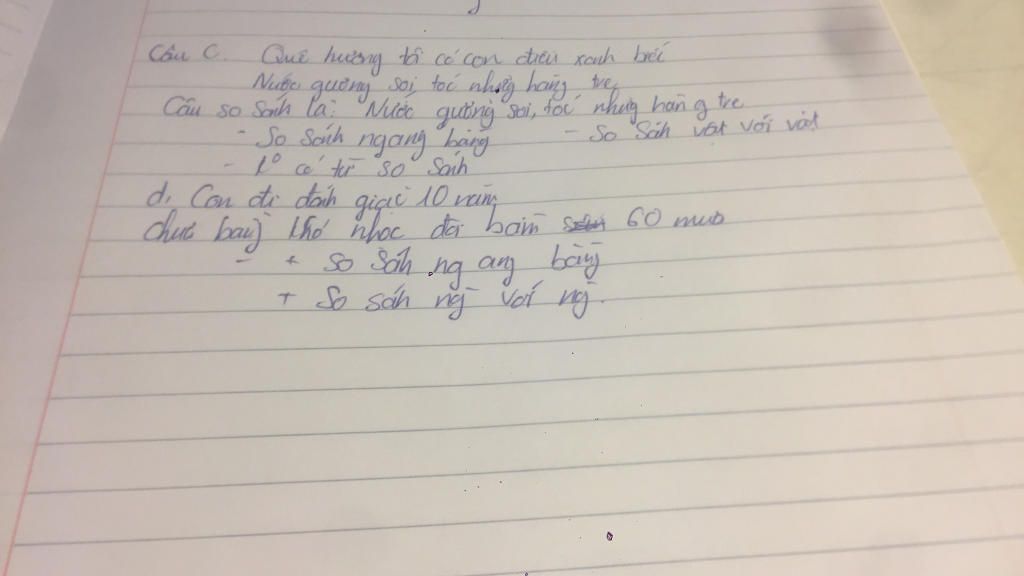 Câu C. Quê hương tôi có con điều xanh biếc
Nước gương soi, tóc những hàng tre
Câu so sánh là: Nước gương soi, tóc những hàng tre
- So sánh ngang bằng - So sánh vật với vật
- K° có từ so sánh
d, Con đi đánh giặc 10 năm
chưa bằng khó nhọc đời bầm 60 mươ
- + So sánh ng ang bằng
+ So sánh ng với ng.